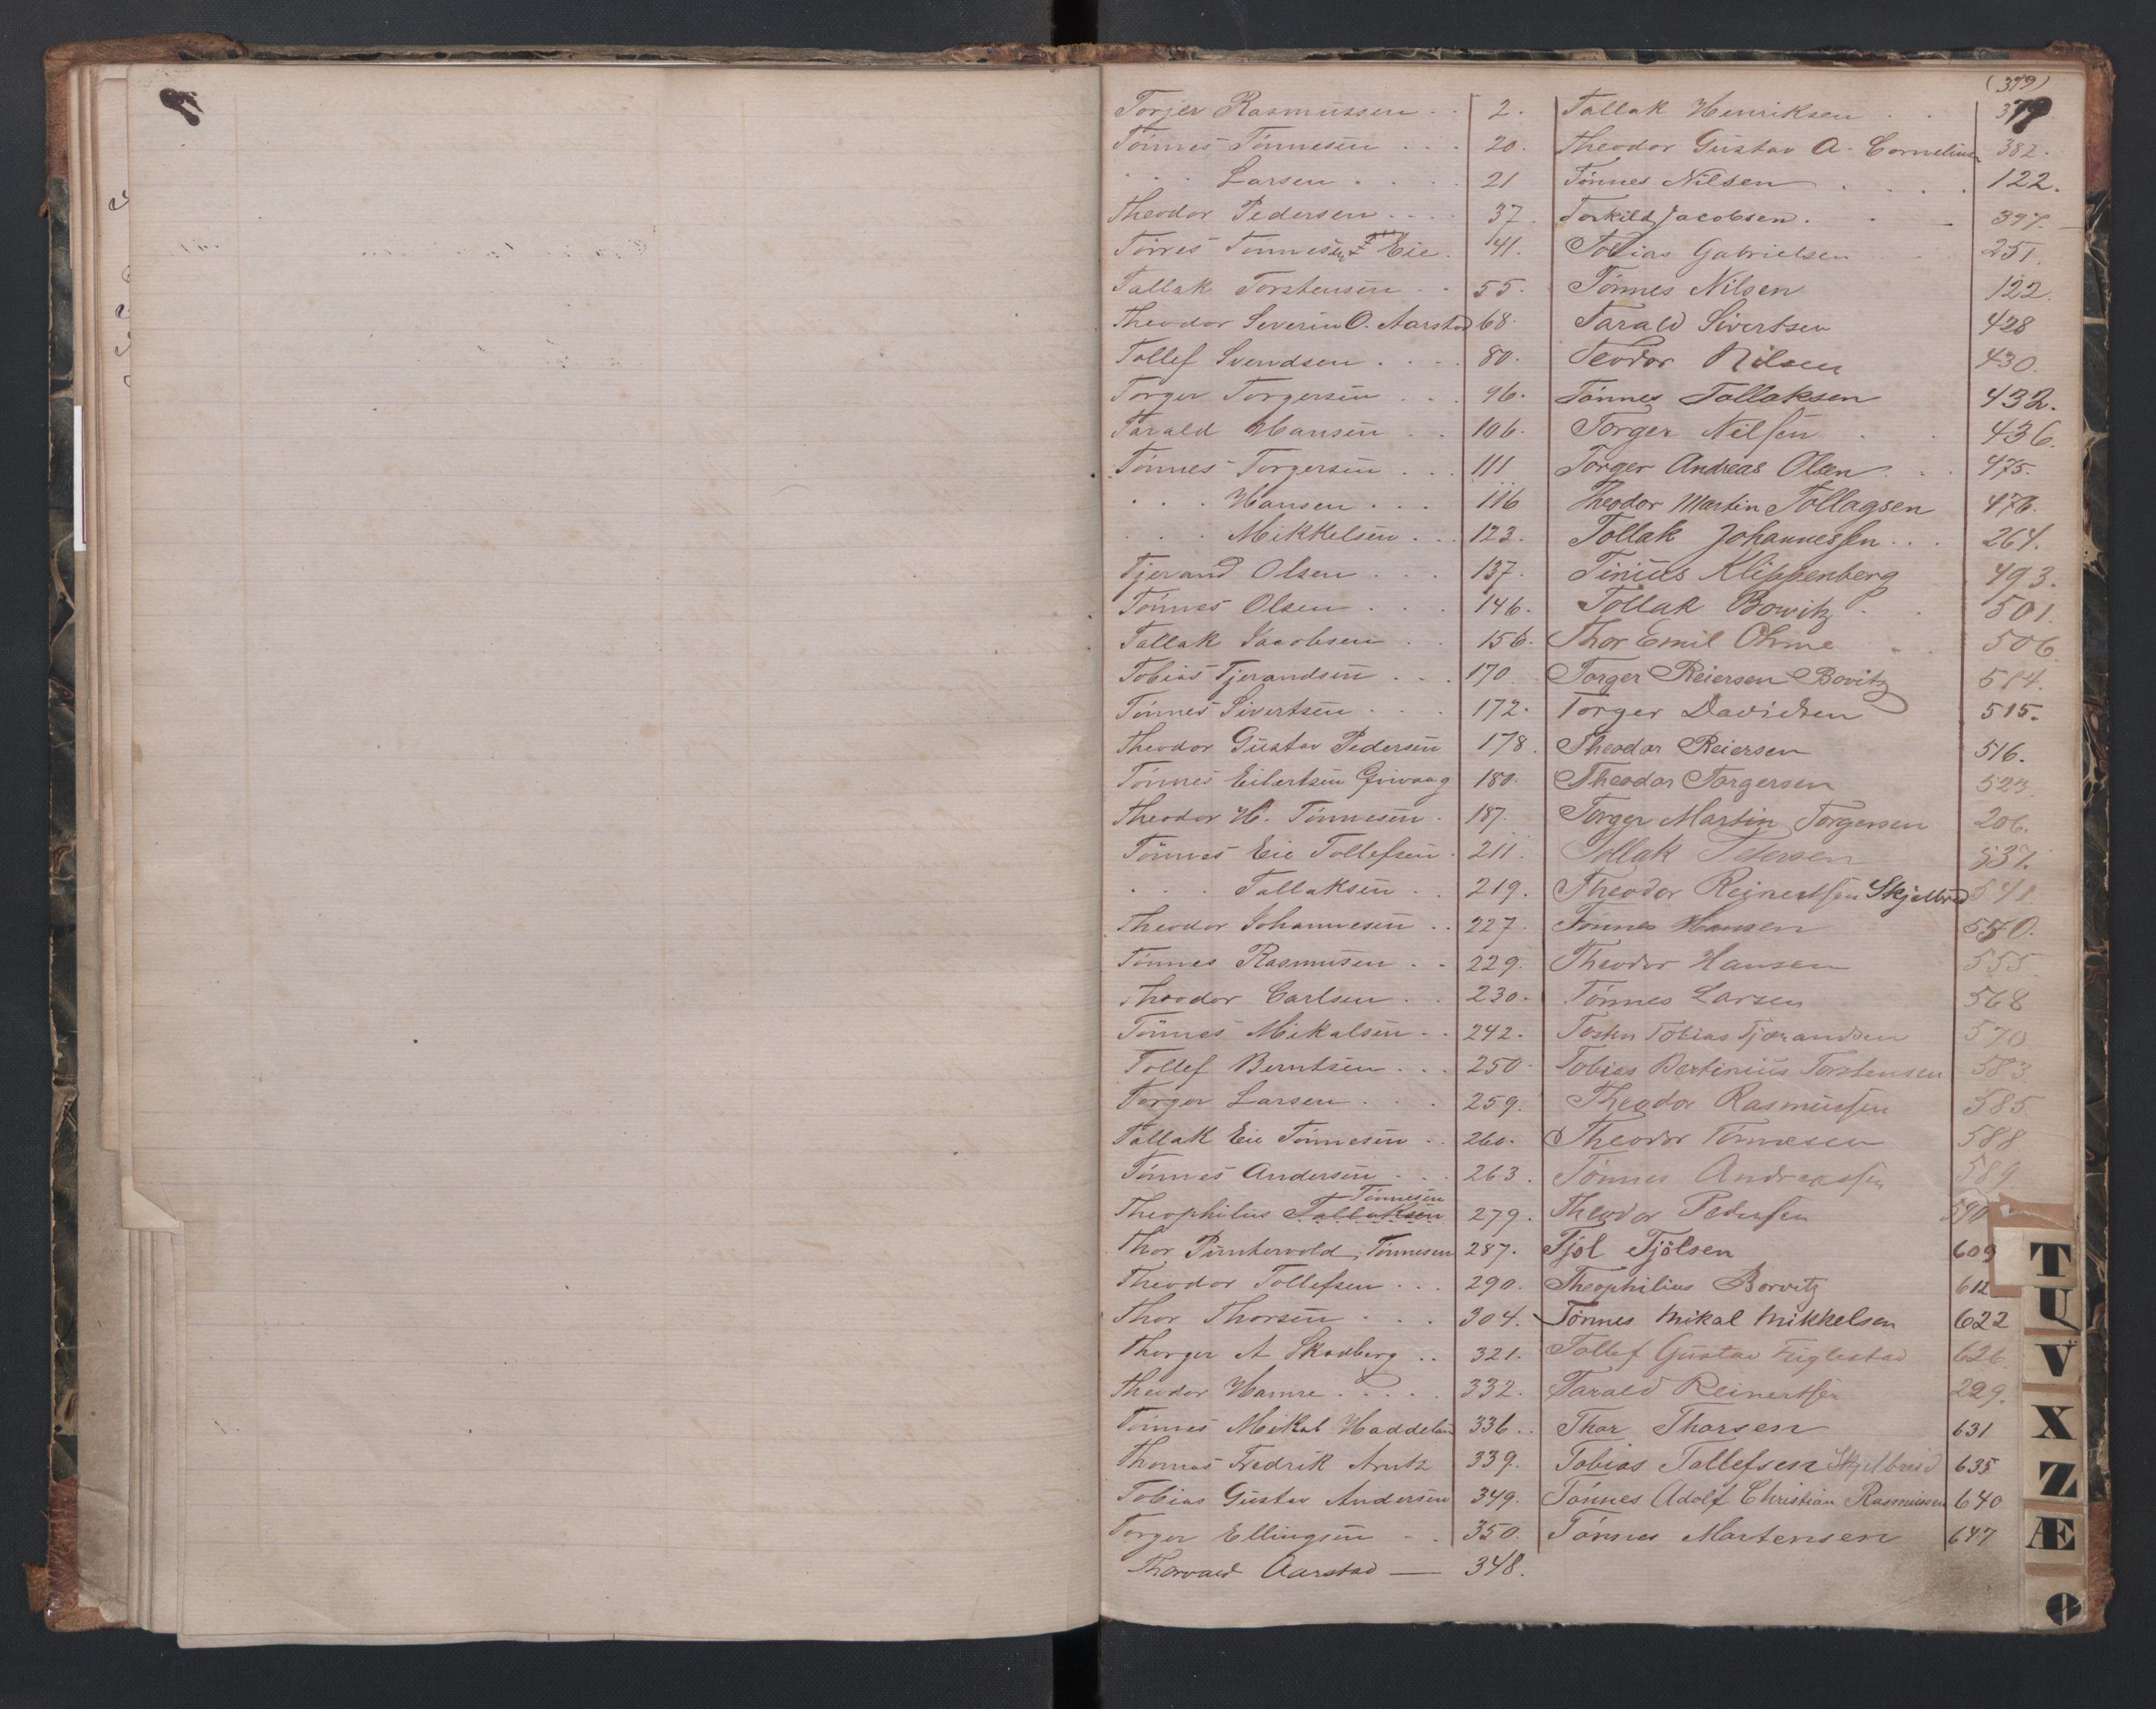 (379)
Torjer Rasmussen . . 2.
Tönnes Tönnesen . . . 20.
. . . Larsen . . . . 21
Theodor Pedersen . . . . 37
Törres Tönnesen Eie . 41.
Tallak Torstensen . . 55.
Theodor Severin O. Aarstad 68.
Tollef Svendsen . . . . 80.
Torger Torgersen . . . 96.
Tarald Hansen . . 106.
Tönnes Torgersen . . . 111
. . . Hansen . . . 116
. . . Mikkelsen . . . 123.
Tjerand Olsen . . . 137.
Tönnes Olsen . . . 146.
Tallak Jacobsen . . 156.
Tobias Tjerandsen . . . 170
Tönnes Sivertsen . . . 172.
Theodor Gustav Pedersen 178.
Tönnes Eilertsen 180.
Theodor H. Tönnesen . 187.
Tönnes Eie Tollefsen . 211.
. . . Tallaksen . . 219.
Theodor Johannesen . . 227.
Tönnes Rasmusen . . 229.
Theodor Carlsen . . 230.
Tönnes Mikalsen . . 242.
Tollef Berntsen . . . 250.
Torger Larsen . . . 259.
Tallak Eie Tönnesen . . 260.
Tönnes Andersen . . . 263.
Tönnesen
Theophilus Tallaksen 279.
Thor Puntervold Tönnesen 287.
Theodor Tollefsen . . . 290.
Thor Thorsen . . . . 304.
Thorger A Skadberg . . 321.
Theodor Hamre . . . . . 332.
Tönnes Mikal Haddeland 336. .
Thomas Fredrik Arntz 339.
Tobias Gustav Andersen 349.
Torger Ellingsen . . 350.
Thorvald Aarstad — 348.
Tallak Henriksen . . 379
Theodor Gustav A. Cornelius 382.
Tönnes Nilsen . . . . 122.
Torkild Jacobsen . . 397.
Tobias Gabrielsen . . 251.
Tönnes Nilsen 122.
Tarald Sivertsen 428
Teodor Nilsen 430.
Tönnes Tollaksen 432.
Torger Nilsen . . 436.
Torger Andreas Olsen . . 475.
Theodor Martin Tollagsen 476.
Tollak Johannessen . . . 264.
Tinius Klippenberg 493.
Tollak Bowitz . . 501.
Thor Emil Ohme . . 506
Torger Reiersen Bovitz 514.
Torger Davidsen 515.
Theodor Reiersen 516.
Theodor Torgersen 523.
Torger Martin Torgersen 206.
Tollak Petersen 537.
Theodor Reinertsen Skjelbred 541.
Tönnes Hansen 550.
Theodor Hansen 555
Tönnes Larsen 568
Tobias Tjærandsen 570
Tobias Bertinius Torstensen 583
Theodor Rasmussen 585
Theodor Tönnesen 588
Tönnes Andreassen 589.
Theodor Pedersen 590
Tjöl Tjölsen 609
Theophilius Borvitz 612
Tönnes Mikal Mikkelsen 622
Tollef Gustav Fuglestad 626.
Tarald Reinertsen 229.
Thor Thorsen 631
Tobias Tollefsen Skjelbreid 635
Tönnes Adolf Christian Rasmussen 640
Tönnes Martensen 647
T
U
V
X
Z
Æ
Ø